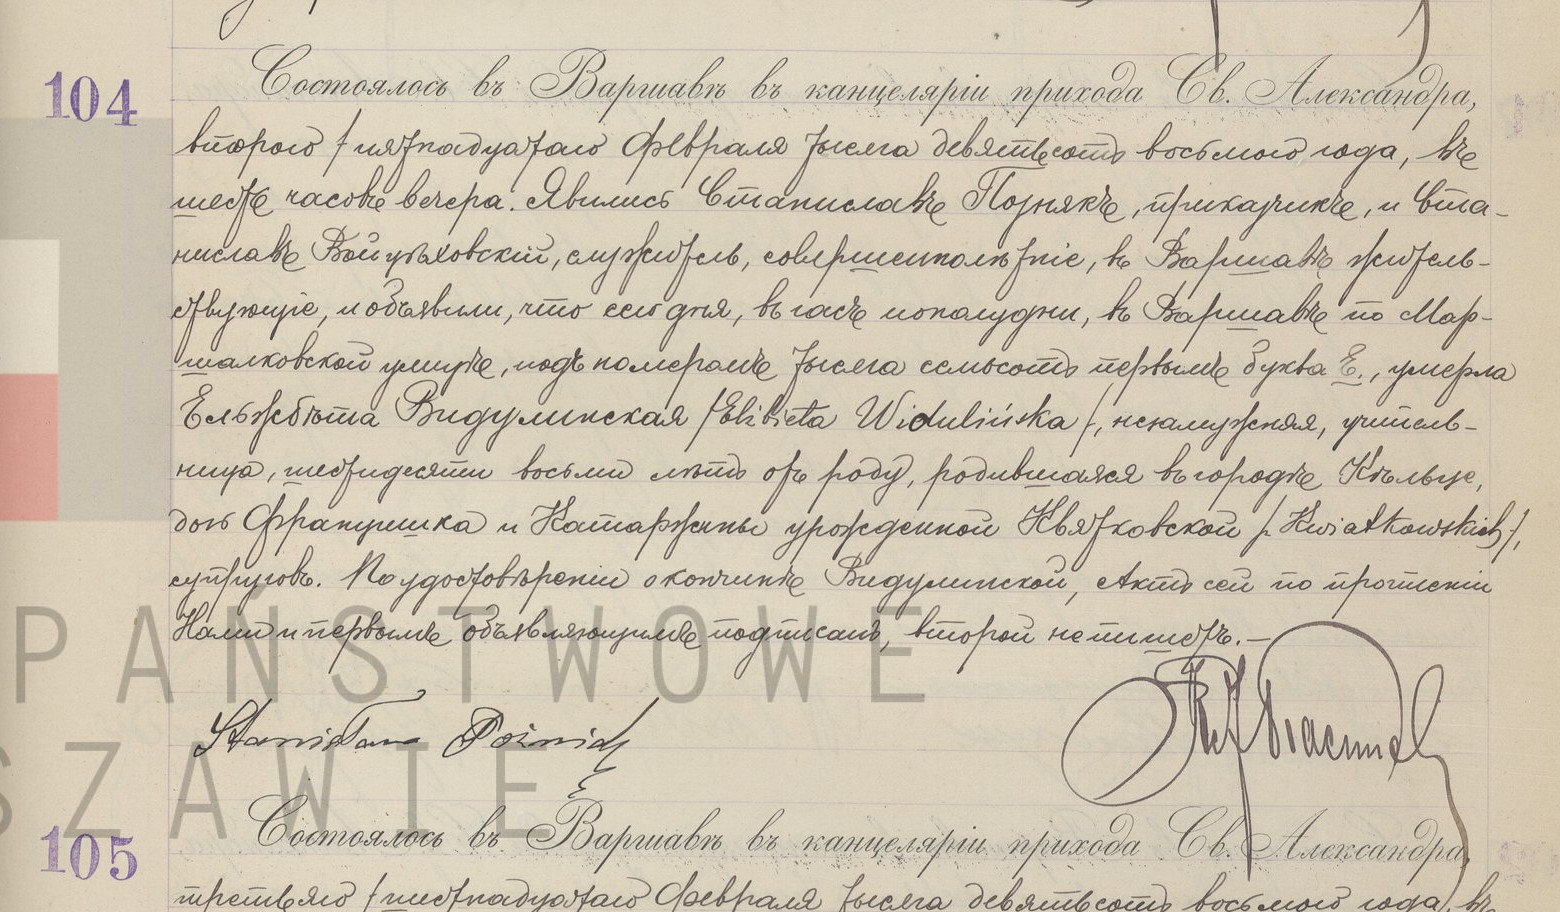 104
Состоялось въ Варшавѣ въ канцеляріи прихода Св. Александра,
второго / пятнадцатаго Февраля тысяча девятьсотъ восьмого года, въ
шесть часовъ вечера. Явились Станиславъ Познякъ, приказчикъ, и Ста-
ниславъ Войцѣховскій, служитель, совершеннолѣтніе, въ Варшавѣ житель-
ствующіе, и объявили, что сего дня, въ часъ пополудни, въ Варшавѣ по Мар-
шалковской улицѣ, подъ номеромъ тысяча семьсотъ первымъ буква Е., умерла
Ельжбѣта Видулинская /Elżbieta Widulińska/, незамужняя, учитель-
ница, шестидесяти восьми лѣтъ отъ роду, родившаяся въ городѣ Кѣльце,
дочь Францишка и Катаржины урожденной Квятковской /Kwiatkowskich/,
супруговъ. По удостовѣреніи о кончинѣ Видулинской, Актъ сей по прочтеніи
Нами и первымъ объявляющимъ подписанъ, второй не пишетъ.—
Stanisław Poźniak
PAŃSTWOWE
SZAWIE
105
Состоялось въ Варшавѣ въ канцеляріи прихода Св. Александра,
третьяго / шестнадцатаго Февраля тысяча девятьсотъ восьмого года, въ